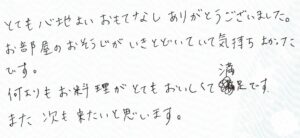 とても心地よい おもてなし ありがとうございました。
お部屋のおそうじが いきとどいていて気持ちよかった
です。
何よりも お料理が とても おいしくて 満足です
また 次も来たいと思います。